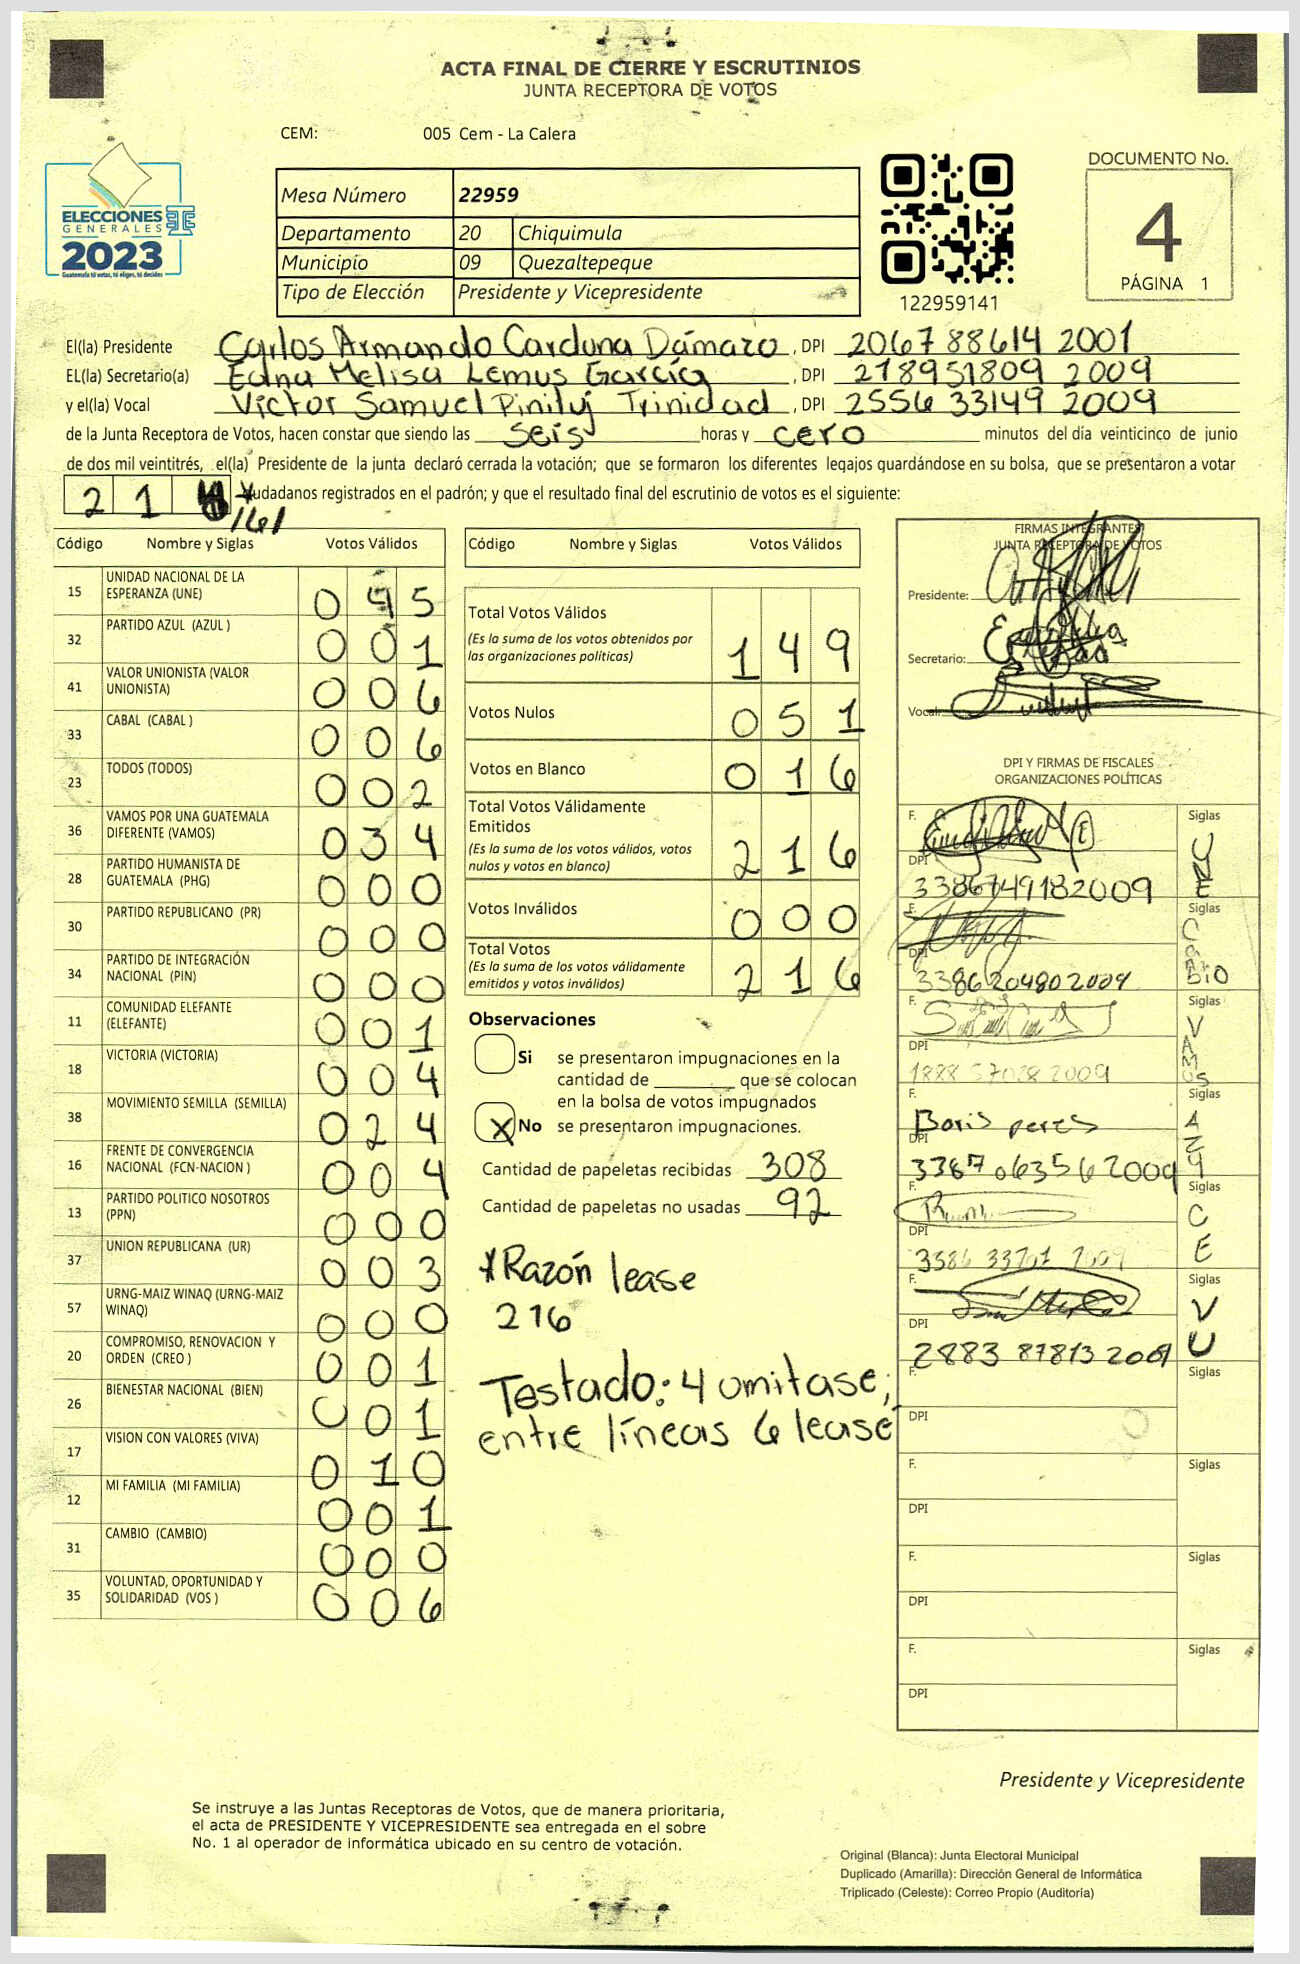 ACTA FINAL DE CIERRE Y ESCRUTINIOS
JUNTA RECEPTORA DE VOTOS
CEM: 005 Cem - La Calera
ELECCIONES
GENERALES
2023
Guatemala tú votas, tú eliges, tú decides
Mesa Número 22959
Departamento 20 Chiquimula
Municipio 09 Quezaltepeque
Tipo de Elección Presidente y Vicepresidente
122959141
DOCUMENTO No.
4
PÁGINA 1
El(la) Presidente Carlos Armando Carduna Dámazo, DPI 2067 88614 2001
EL(la) Secretario(a) Edna Melisa Lemus García, DPI 218951809 2009
y el(la) Vocal Víctor Samuel Trinidad, DPI 2556 33149 2009
de la Junta Receptora de Votos, hacen constar que siendo las seis horas y cero minutos del día veinticinco de junio
de dos mil veintitrés, el(la) Presidente de la junta declaró cerrada la votación; que se formaron los diferentes legajos guardándose en su bolsa, que se presentaron a votar
2 1 * udadanos registrados en el padrón; y que el resultado final del escrutinio de votos es el siguiente:
/6/
Código Nombre y Siglas Votos Válidos
15 UNIDAD NACIONAL DE LA ESPERANZA (UNE) 0 4 5
32 PARTIDO AZUL (AZUL ) 0 0 1
41 VALOR UNIONISTA (VALOR UNIONISTA) 0 0 6
33 CABAL (CABAL ) 0 0 6
23 TODOS (TODOS) 0 0 2
36 VAMOS POR UNA GUATEMALA DIFERENTE (VAMOS) 0 3 4
28 PARTIDO HUMANISTA DE GUATEMALA (PHG) 0 0 0
30 PARTIDO REPUBLICANO (PR) 0 0 0
34 PARTIDO DE INTEGRACIÓN NACIONAL (PIN) 0 0 0
11 COMUNIDAD ELEFANTE (ELEFANTE) 0 0 1
18 VICTORIA (VICTORIA) 0 0 4
38 MOVIMIENTO SEMILLA (SEMILLA) 0 2 4
16 FRENTE DE CONVERGENCIA NACIONAL (FCN-NACION ) 0 0 4
13 PARTIDO POLITICO NOSOTROS (PPN) 0 0 0
37 UNION REPUBLICANA (UR) 0 0 3
57 URNG-MAIZ WINAQ (URNG-MAIZ WINAQ) 0 0 0
20 COMPROMISO, RENOVACION Y ORDEN (CREO ) 0 0 1
26 BIENESTAR NACIONAL (BIEN) 0 0 1
17 VISION CON VALORES (VIVA) 0 1 0
12 MI FAMILIA (MI FAMILIA) 0 0 1
31 CAMBIO (CAMBIO) 0 0 0
35 VOLUNTAD, OPORTUNIDAD Y SOLIDARIDAD (VOS ) 0 0 6
Código Nombre y Siglas Votos Válidos
Total Votos Válidos 1 4 9
(Es la suma de los votos obtenidos por
las organizaciones políticas)
Votos Nulos 0 5 1
Votos en Blanco 0 1 6
Total Votos Válidamente
Emitidos 2 1 6
(Es la suma de los votos válidos, votos
nulos y votos en blanco)
Votos Inválidos 0 0 0
Total Votos 2 1 6
(Es la suma de los votos válidamente
emitidos y votos inválidos)
Observaciones
Si se presentaron impugnaciones en la
cantidad de ________ que se colocan
en la bolsa de votos impugnados
X No se presentaron impugnaciones.
Cantidad de papeletas recibidas 308
Cantidad de papeletas no usadas 92
*Razón lease
216
Testado: 4 omitase;
entre líneas 6 lease
FIRMAS INTEGRANTES
JUNTA RECEPTORA DE VOTOS
Presidente:
Secretario:
Vocal:
DPI Y FIRMAS DE FISCALES
ORGANIZACIONES POLÍTICAS
F. Siglas UNE
DPI 3386749182009
F. Siglas
DPI 3386204802009
F. Siglas VAMOS
DPI 1888 57028 2009
F. Boris peres Siglas
DPI 3387 06356 2009
F. Siglas
DPI
F. Siglas
DPI 2883 87813 2009
F. Siglas
DPI
F. Siglas
DPI
F. Siglas
DPI
F. Siglas
DPI
Presidente y Vicepresidente
Se instruye a las Juntas Receptoras de Votos, que de manera prioritaria,
el acta de PRESIDENTE Y VICEPRESIDENTE sea entregada en el sobre
No. 1 al operador de informática ubicado en su centro de votación.
Original (Blanca): Junta Electoral Municipal
Duplicado (Amarilla): Dirección General de Informática
Triplicado (Celeste): Correo Propio (Auditoría)